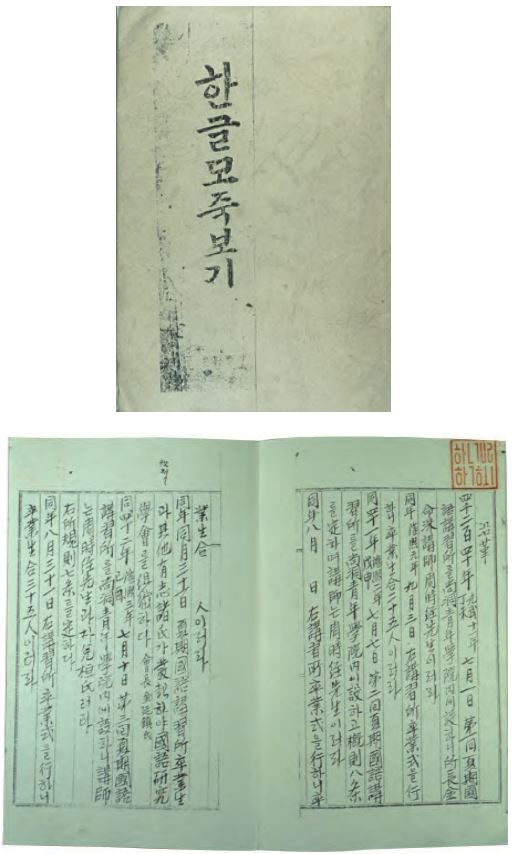 한글모죽보기
沿革
四千二百四十年 丁未 光武十一年 七月一日 第一回夏期國
語講習所를尙洞靑年學院內에設하니所長金
命洙講師周時經先生이러라
同年 隆熙元年 九月三日 右講習所卒業式을行
하니卒業生合二十五人이러라
同四十一年 戊申 隆熙二年 七月七日 第二回夏期國語講
習所를尙洞靑年學院內에設하고槪則八條
를定하며講師는周時經先生이러라
同年八月 日 右講習所卒業式을行하니卒
業生合 人이러라
同年同月三十一日 夏期國語講習所卒業生
과其他有志諸氏가發起하야國語硏究
學會를組織하다 會長金廷鎭氏
同四十二年 己酉 隆熙三年 七月十日 第三回夏期國語
講習所를尙洞靑年學院內에設하니講師
는周時經先生과 植氏러라
右所規則七條를定하다
同年八月三十一日右講習所卒業式을行하니
卒業生合三十五人이러라